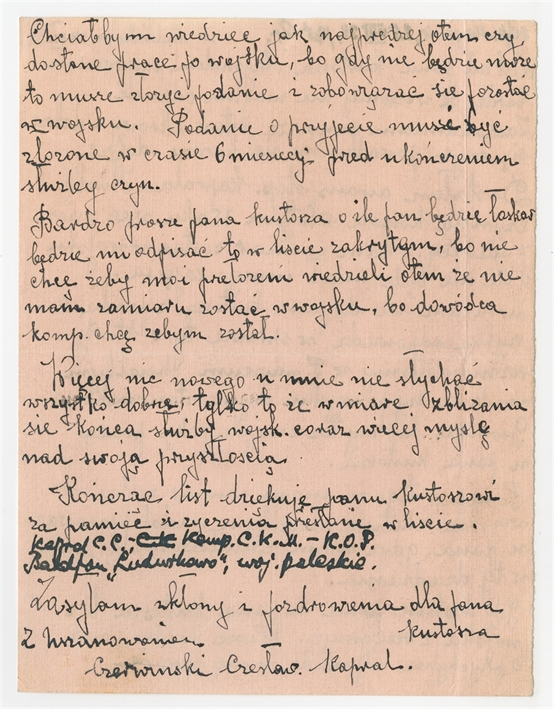 Chciałbym wiedzieć jak najprędzej otem czy
dostane prace po wojsku, bo gdy nie będzie może
to musze złożyc podanie i zobowiązać się pozostać
w wojsku. Podanie o przyjęcie musi być
złorone w czasie 6 miesięcy przed ukończeniem
służby czyn.
Bardzo prosze pana kustosza o ile pan będzie łaskaw
będzie mi odpisać to w liscie zakrytym, bo nie
chcę żeby moi przełozeni wiedzieli otem że nie
mam zamiaru zostać w wojsku, bo dowódca
komp. chcę zebym został.
Więcej nic nowego u mnie nie słychać
wszystko dobrze, tylko to że w miare zbliżania
sie końca służby wojsk. coraz więcej myslę
nad swoją przyszłoscią.
Kończac list dziękuję panu kustoszowi
za pamięć i zyczenia przesłane w liscie.
Kaprol C. C. - C.K. Komp. C. K. M. - K. O. P.
Baon "Ludwikowo", woj. poleskie.
Zasyłam ukłony i pozdrowienia dla pana
kustosza
Z wszanowaniem
Czerwinski Czesław. Kapral.